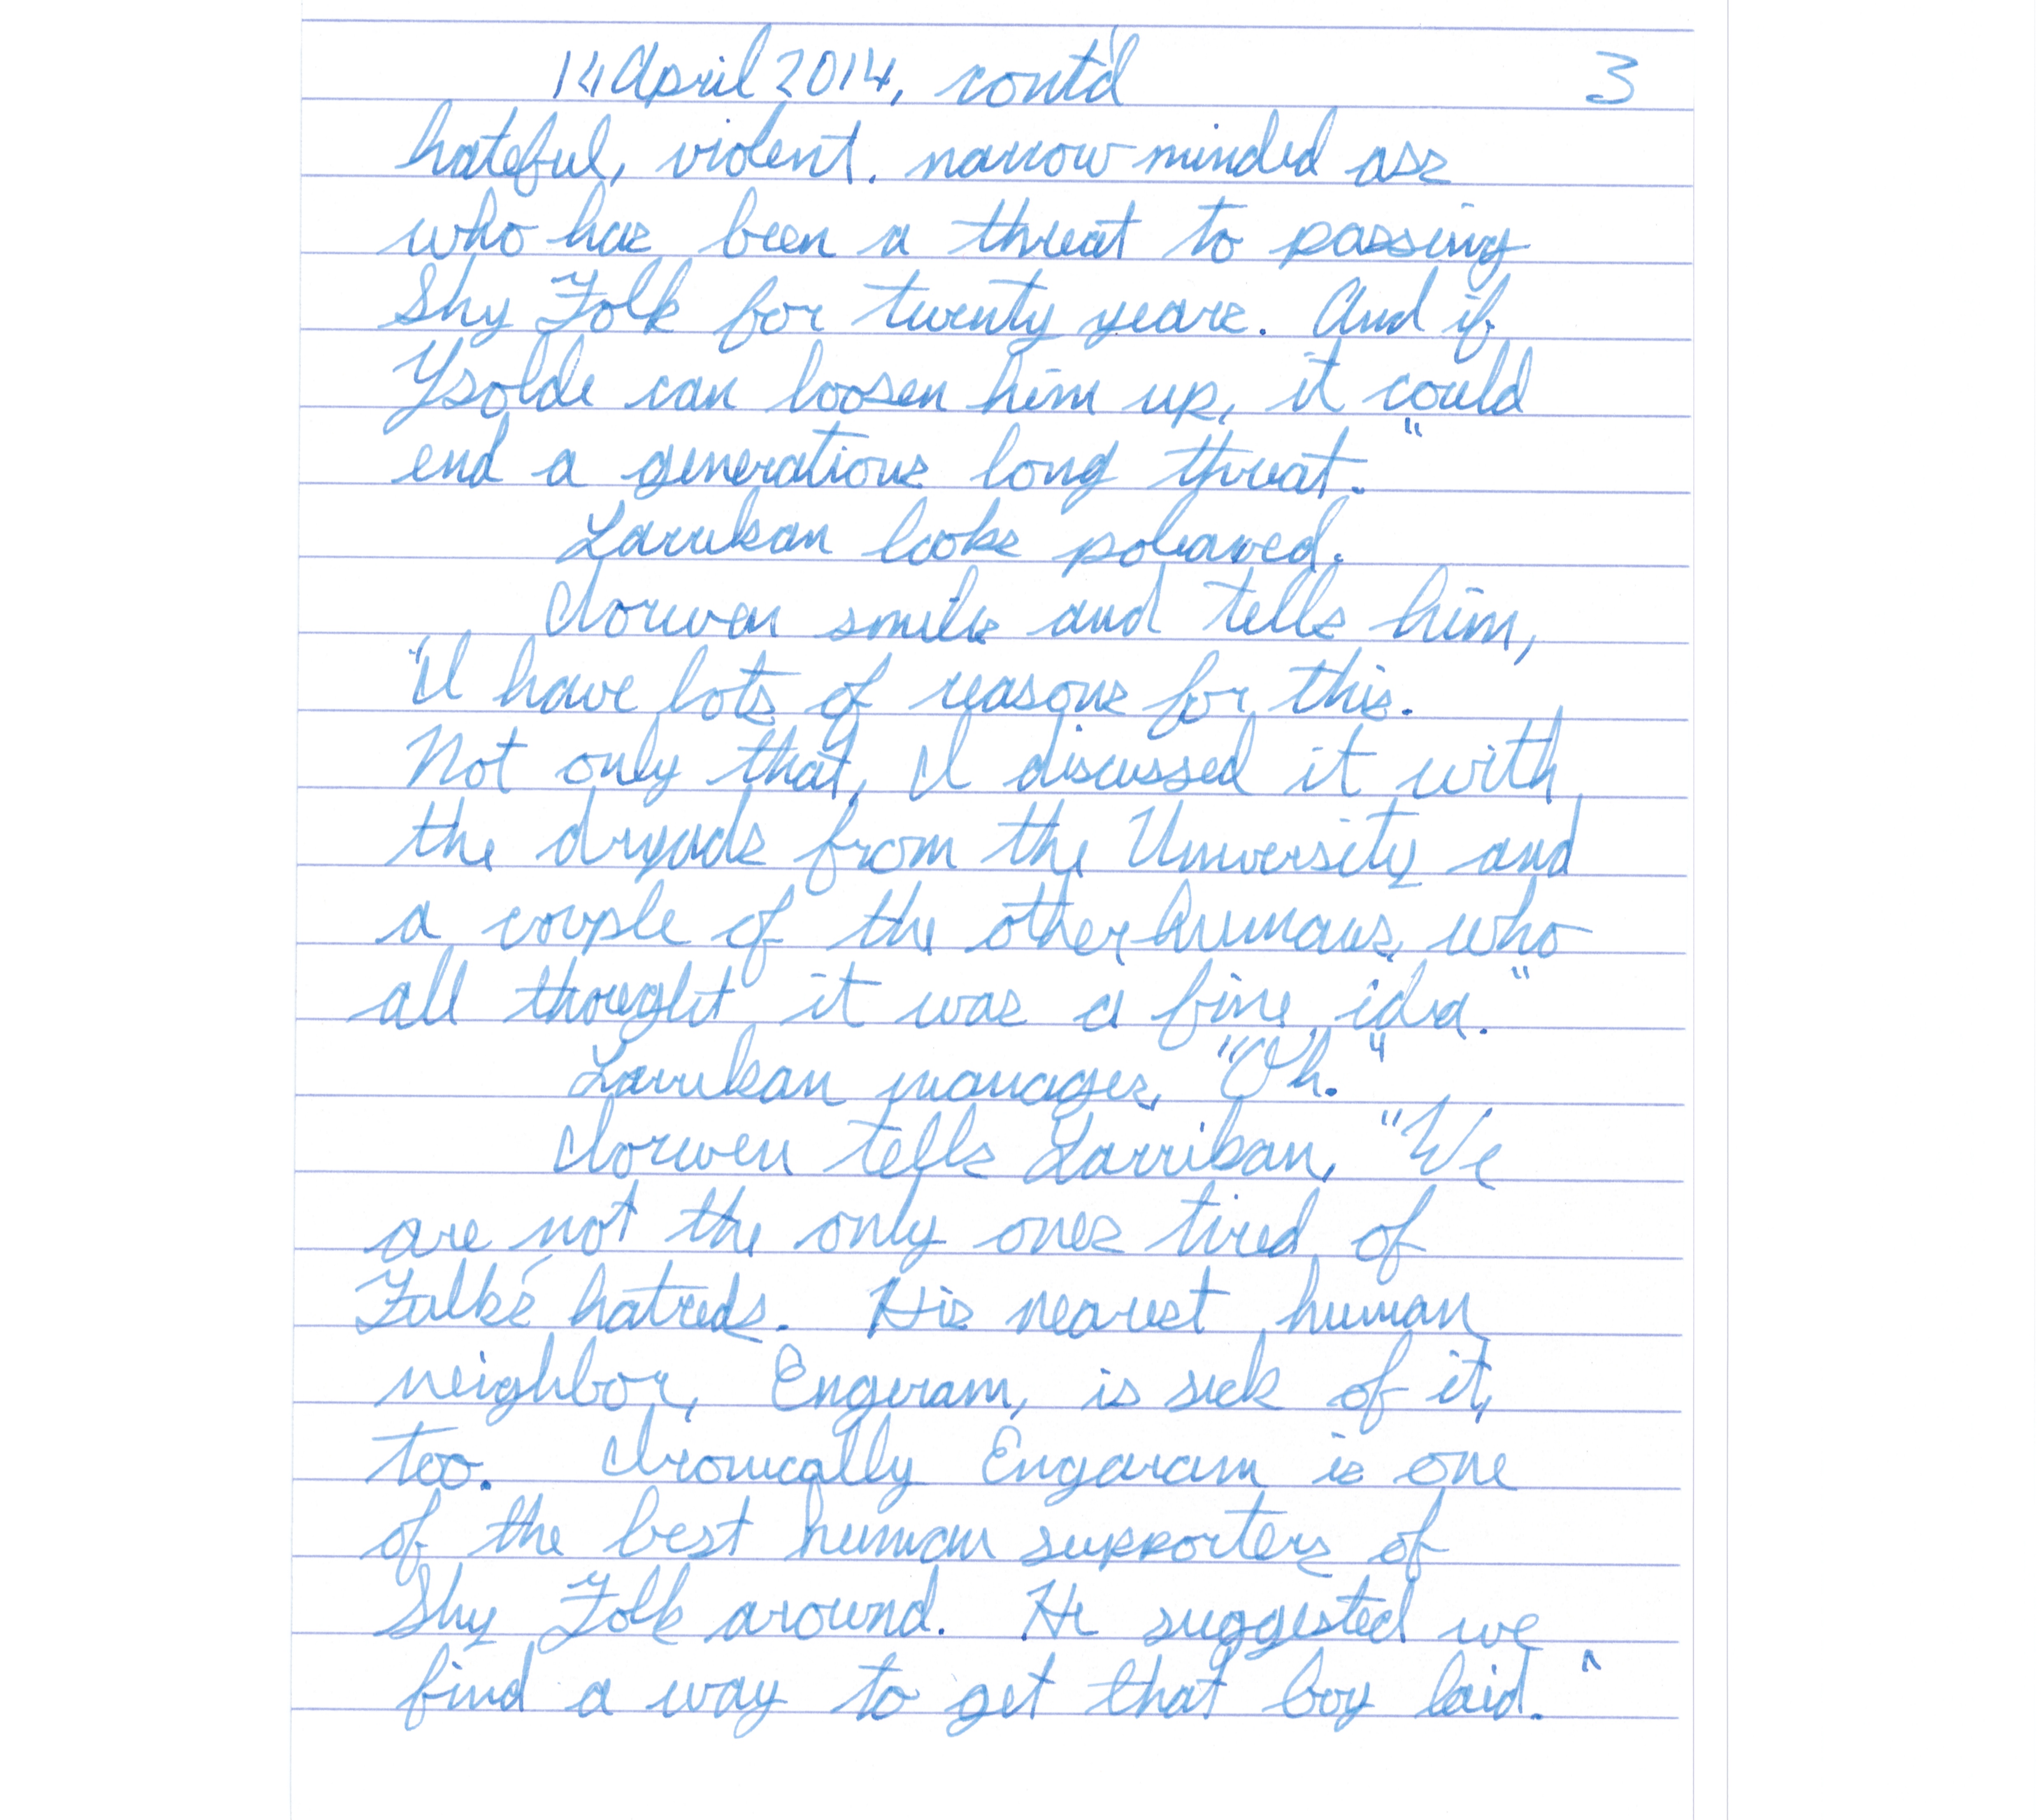 14 April 2014, cont'd 3
hateful, violent. narrow minded ass
who has been a threat to passing
Shy Folk for twenty years. And if
Ysolde can loosen him up, it could
end a generations long threat."
Larrikan looks poleaxed.
Iorwen smiles and tells him,
"I have lots of reasons for this.
Not only that, I discussed it with
the dryads from the University and
a couple of the other humans, who
all thought it was a fine idea."
Larrikan manages, "Oh."
Iorwen tells Larrikan, "We
are not the only ones tired of
Fulk's hatreds. His nearest human
neighbor, Engeram, is sick of it,
too. Ironically Engeram is one
of the best human supporters of
Shy Folk around. He suggested we
find a way to get that boy laid."